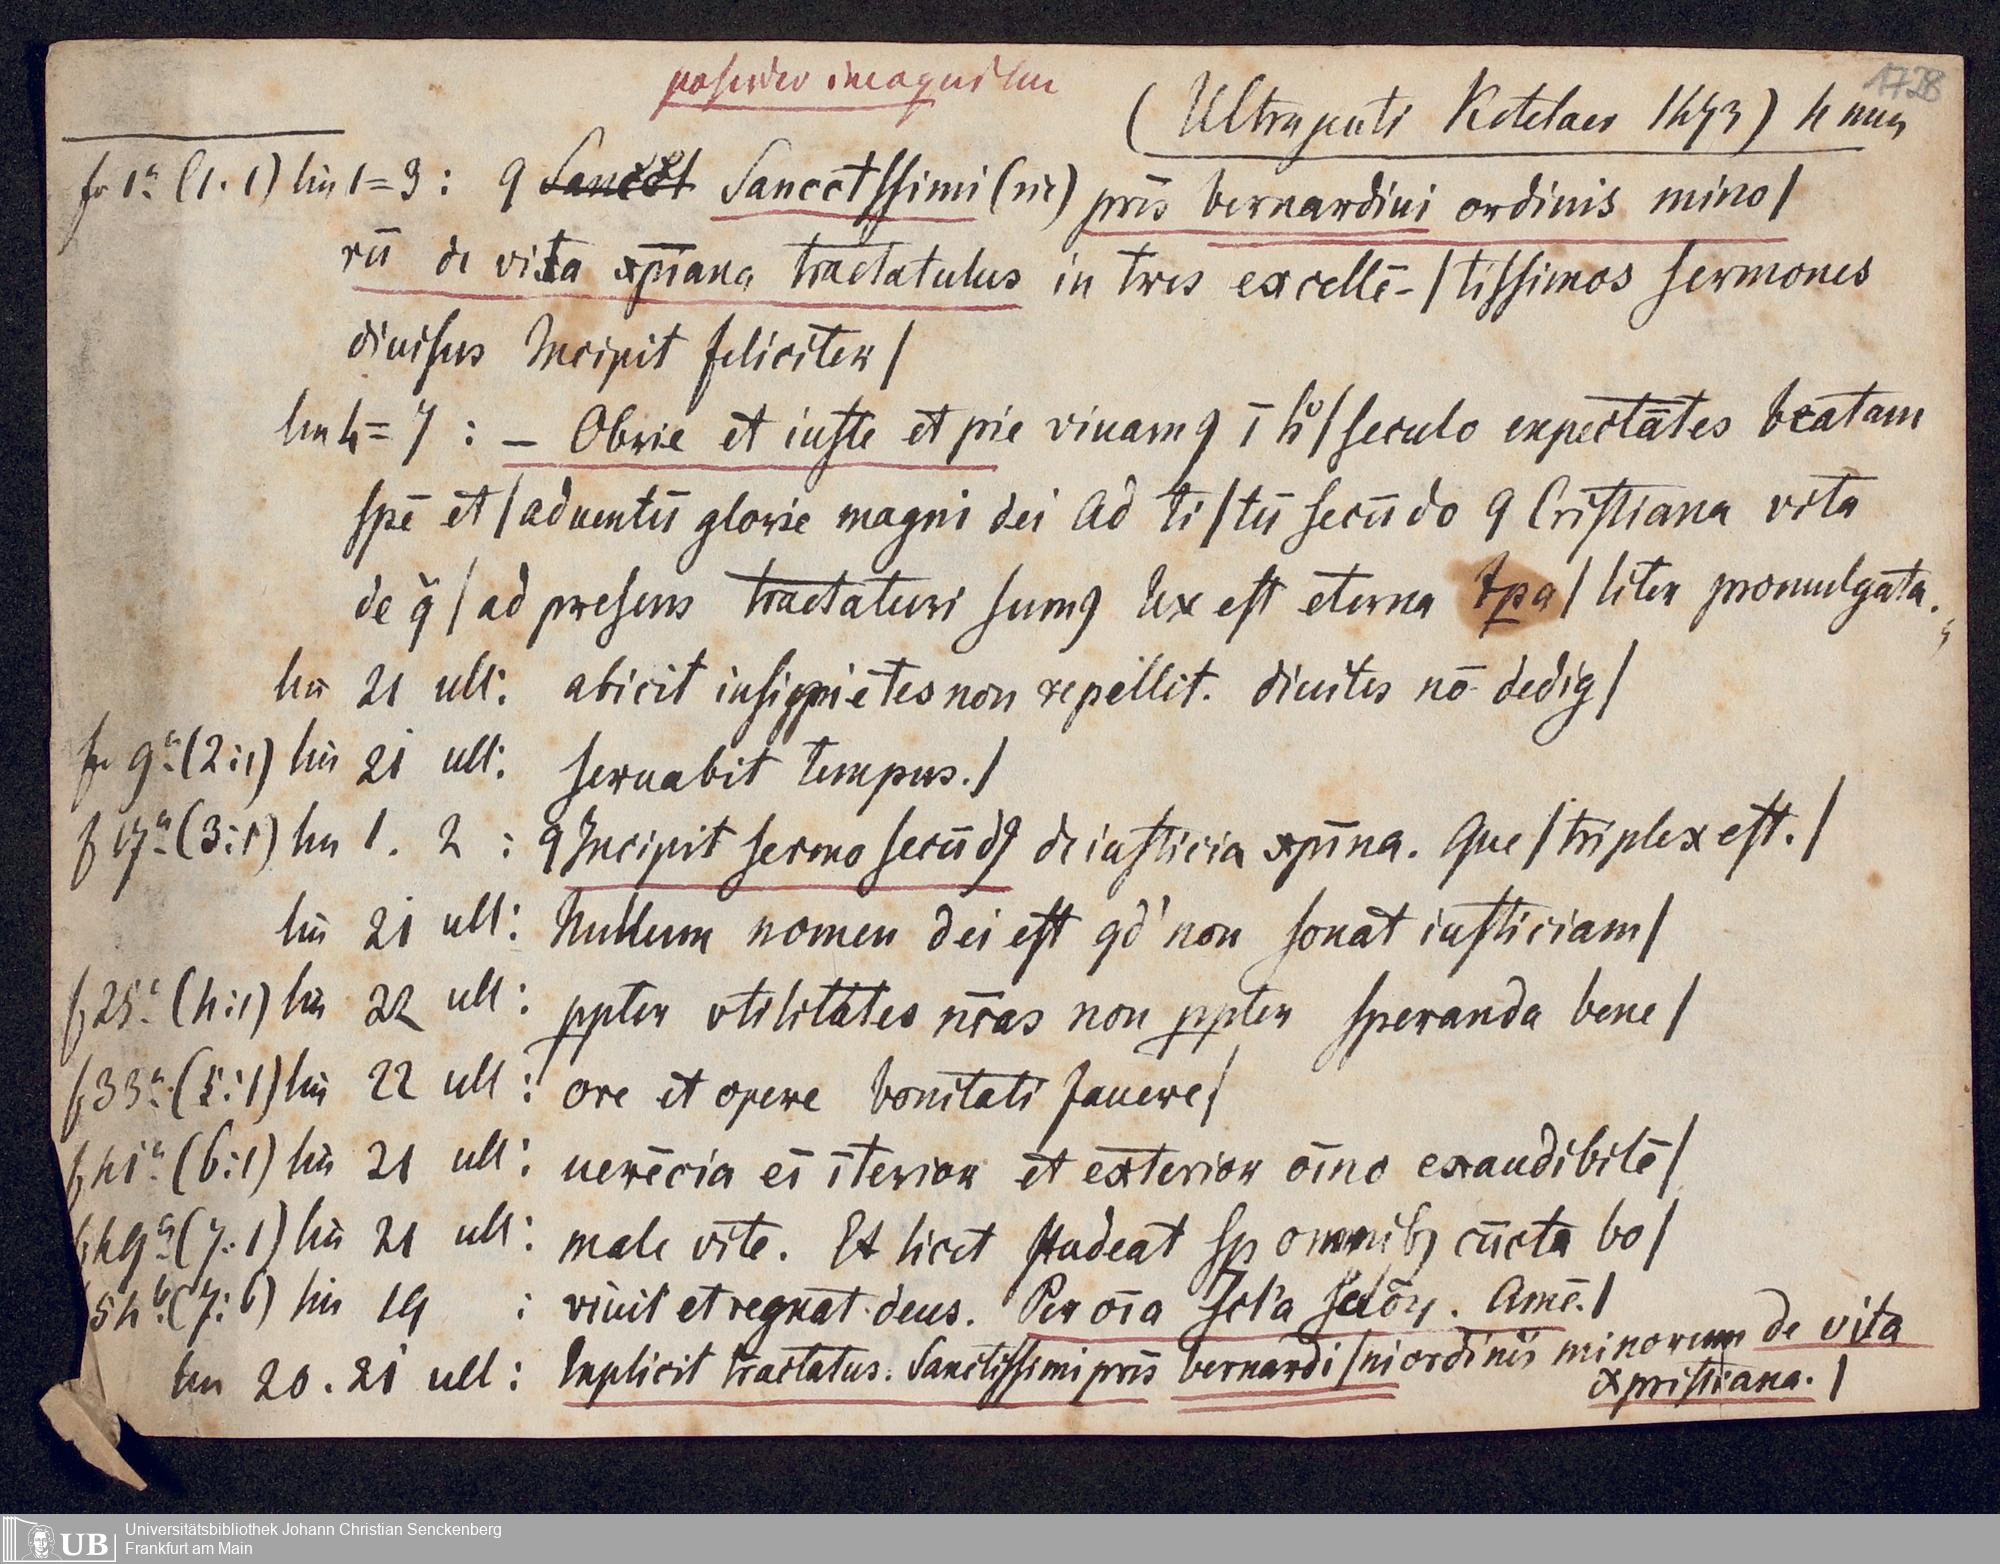 1728
(Ultrajecti Ketelaer 1473) 4 min
fo 1a (1.1) lin 1=3: q Sancct Sancctissimi (sic) pris bernardini ordinis mino/
rū de vita xp̄iana tractatulus in tres excellē-/tissimos sermones
diuisus Incipit feliciter/
lin 4=7: – Obrie et iuste et pie viuamq ī hͦ/seculo expectātes beatam
spē et/aduentū glorie magni dei Ad ti/tū secūdo q Cristiana vita
de q̄/ad presens tractaturi sumq lex est eterna tpa/liter promulgata.
lin 21 ult: abicit insipiētes non repellit. diuites nō dedig/
fo 9a (2:1) lin 21 ult: seruabit tempus./
f 17a (3:1) lin 1. 2: q Incipit sermo secūdq de iusticia xp̄ina. Que/triplex est./
lin 21 ult: Nullum nomen dei est qd' non sonat iusticiam/
f 25a (4:1) lin 22 ult: ppter vtilitates nr̄as non ppter speranda bene/
f 33a (5:1) lin 22 ult: ore et opere bonitati fauere/
f 41a (6:1) lin 21 ult: uerēcia eī īterior et exterior oīno exaudibilē/
f 49a (7:1) lin 21 ult: male vite. Et licet studeat sp omnibq cūcta bo/
54b (7:6) lin 19 : viuit et regnat deus. Per oīa scl'a sclōrꝝ. Amē./
lin 20. 21 ult: Explicit tractatus. Sanctissimi pris bernardi/ni ordinis minorum de vita
xpristiana./
Universitätsbibliothek Johann Christian Senckenberg
UB Frankfurt am Main